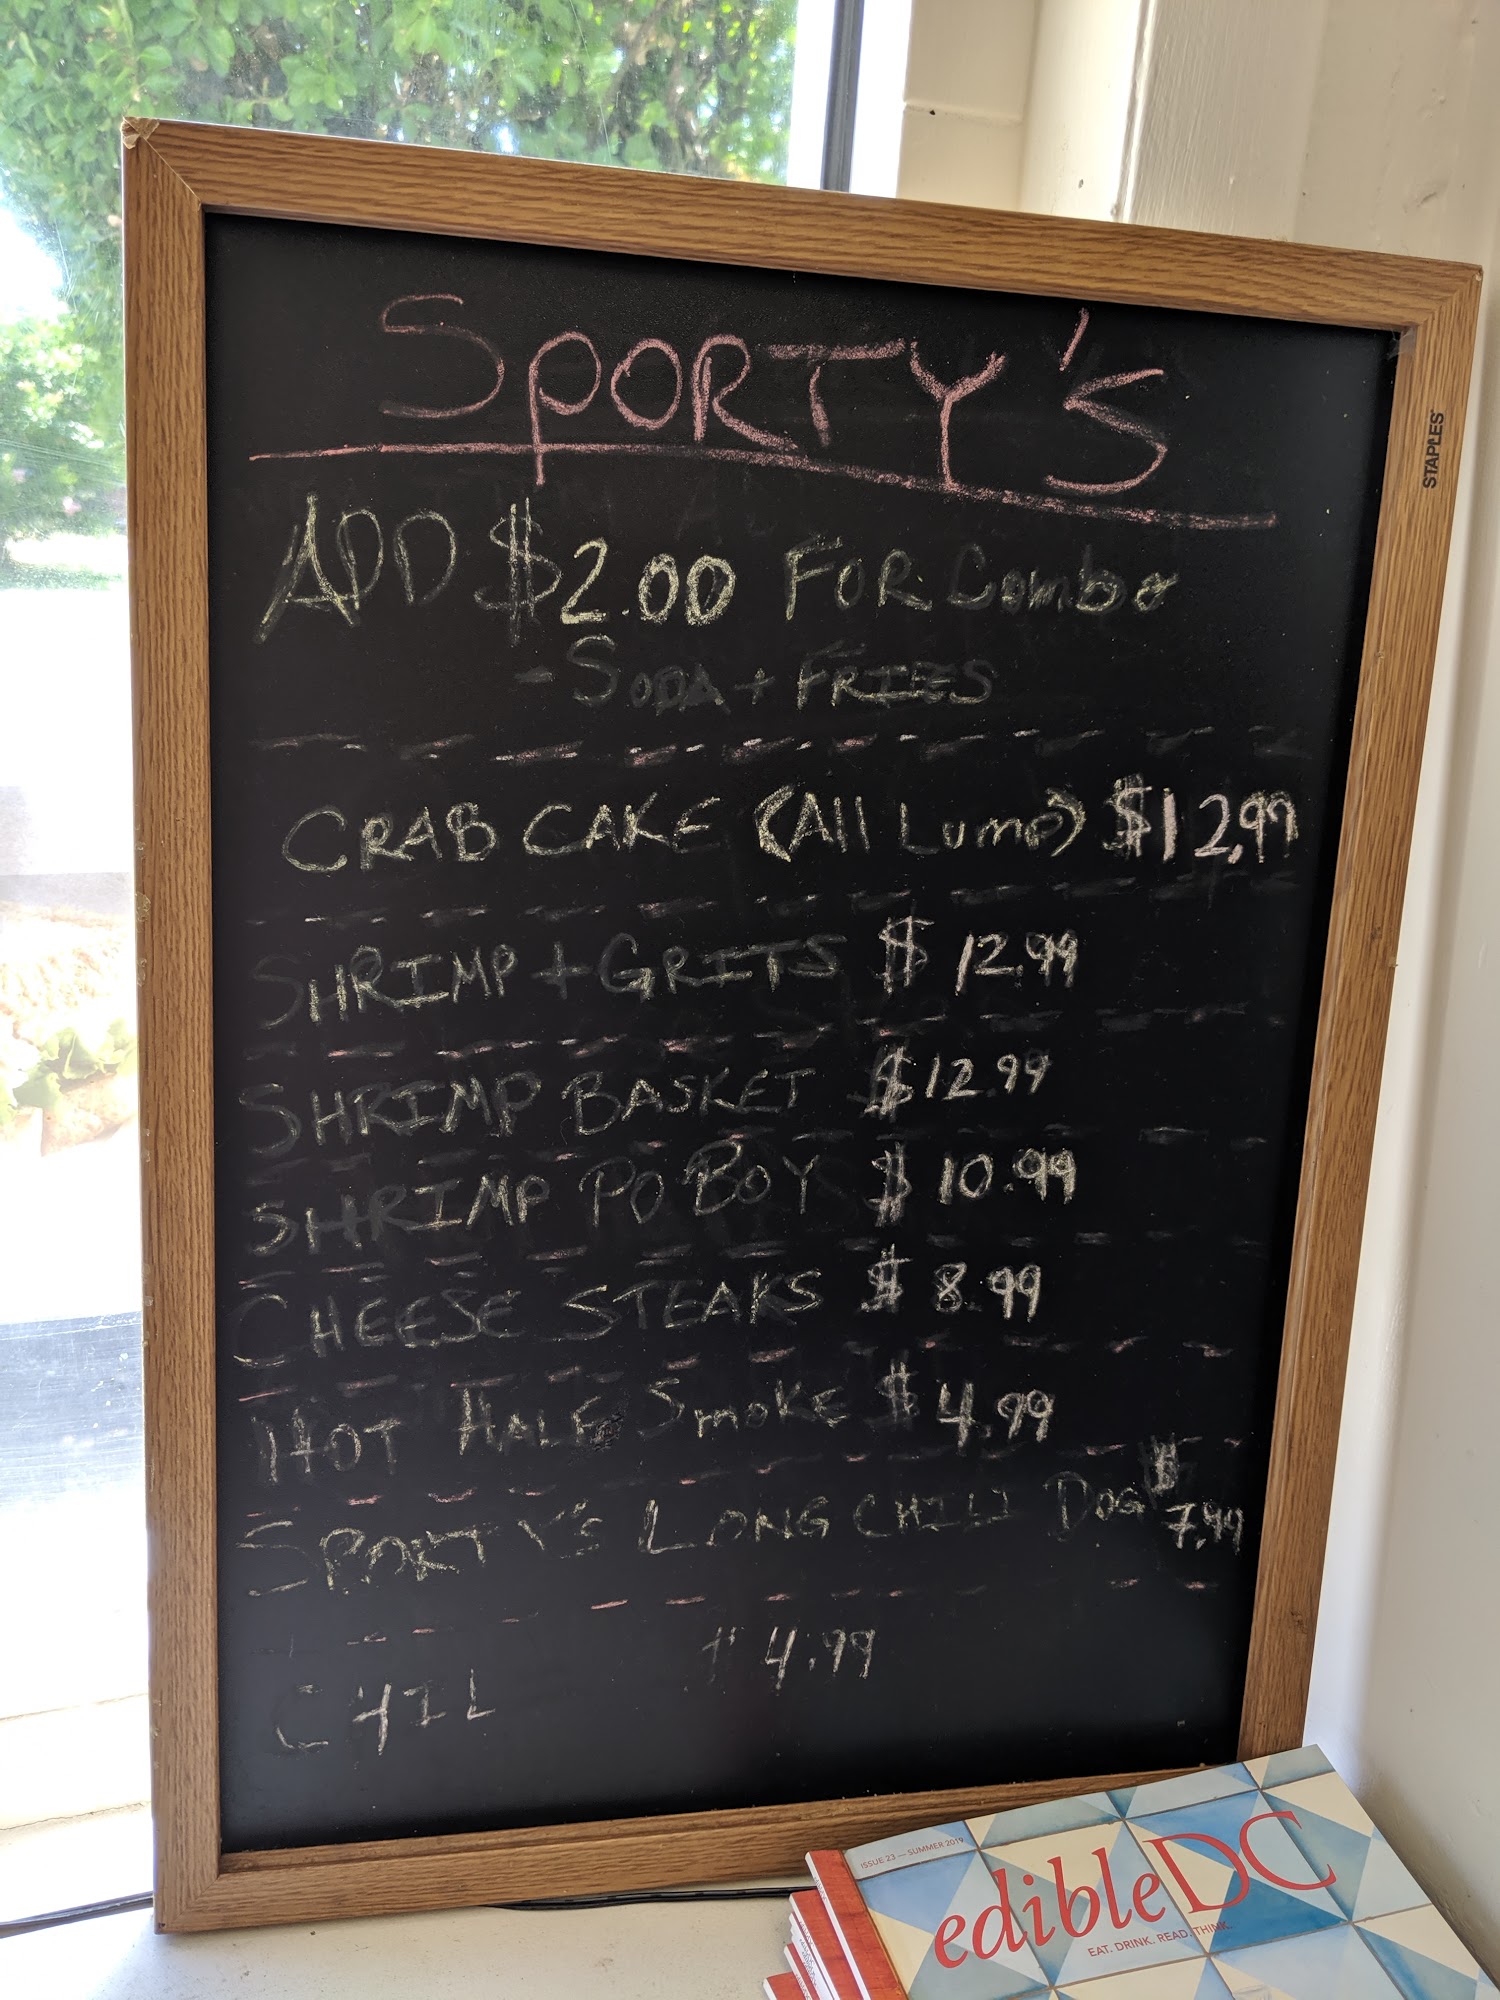 SPORTY'S
ADD $2.00 FOR Combo
- SODA + FRIES
CRAB CAKE (All Lump) $12.99
SHRIMP + GRITS $ 12.99
SHRIMP BASKET $12.99
SHRIMP PO BOY $ 10.99
CHEESE STEAKS $ 8.99
HOT HALF SmoKE $ 4.99
SPORTY'S LONG CHILI DOG $ 7.99
CHIL $ 4.99
STAPLES
ISSUE 23 — SUMMER 2019
edibleDC
EAT. DRINK. READ. THINK.